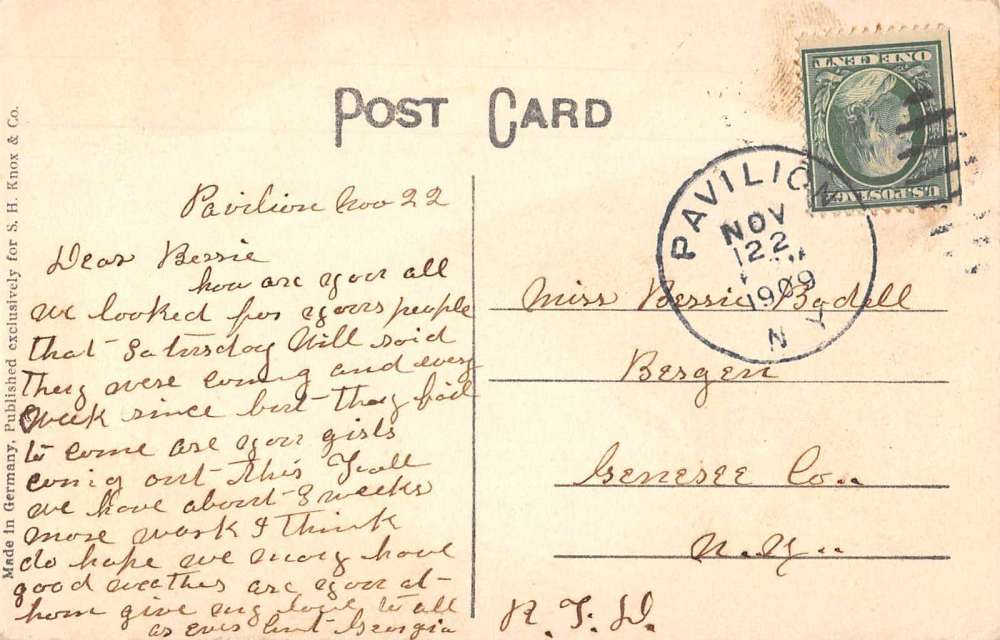 POST CARD
Made in Germany, Published exclusively for S. H. Knox & Co.
ONE CENT
U.S. POSTAGE
PAVILION
NOV
22
1909
N Y
Pavilion Nov 22
Dear Bessie
how are your all
we looked for yours people
that Saturday Will said
they were coming and every
week since but they fail
to come are your girls
coming out this Fall
we have about 3 weeks
more work I think
do hope we may have
good weather are your at
home give my love to all
as ever Aunt Georgia
Miss Bessie Bodell
Bergen
Genesee Co..
N.Y..
R. F. D.